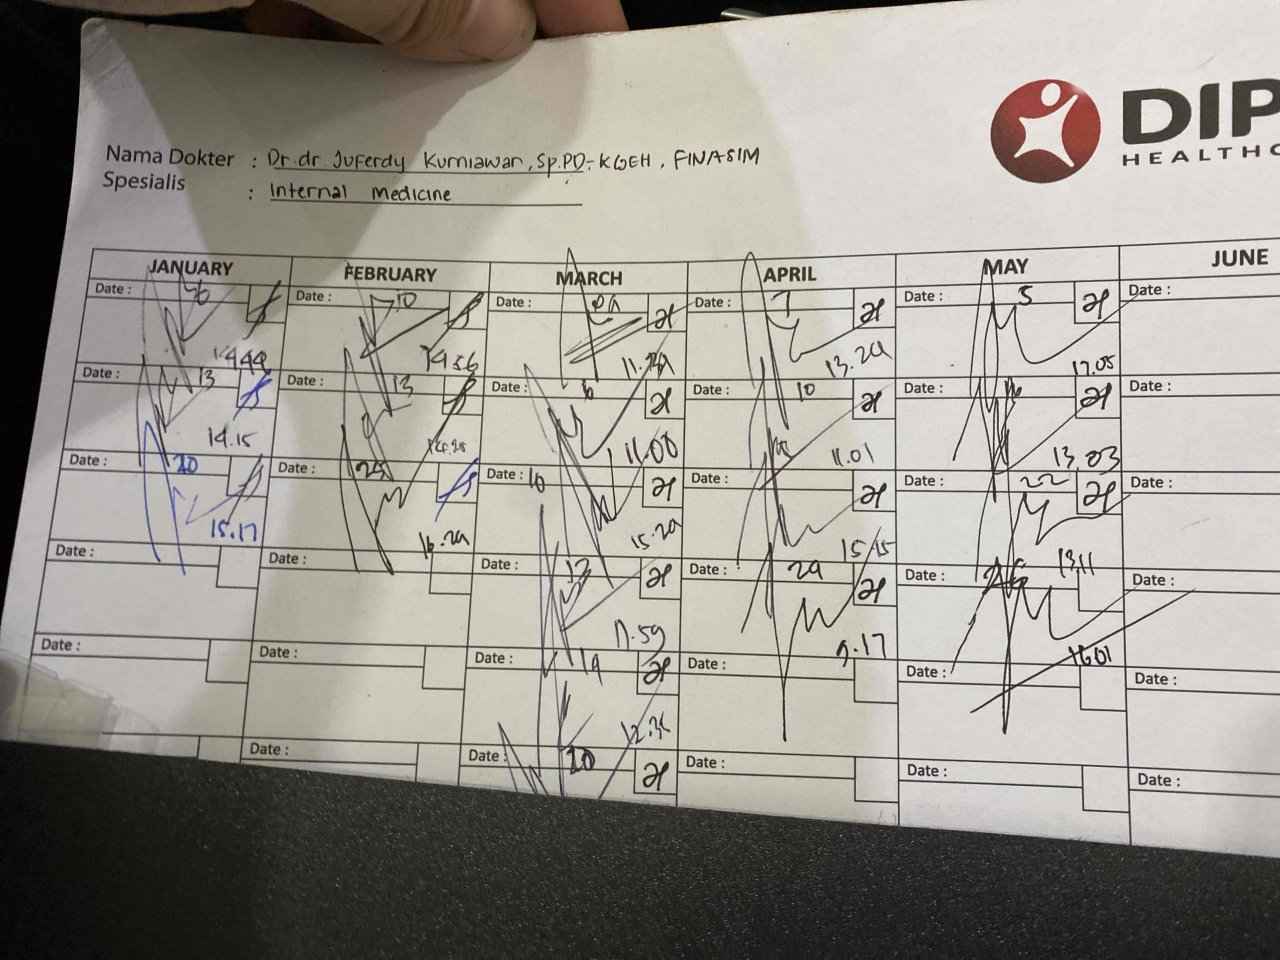 DIP
HEALTHC
Nama Dokter : Dr. dr. Juferdy Kurniawan, Sp.PD-KGEH, FINASIM
Spesialis : Internal Medicine
JANUARY FEBRUARY MARCH APRIL MAY JUNE
Date : 6 Date : 10 Date : Date : 7 Date : 5 Date :
14.49 14.56 11.29 13.29 17.05
Date : 13 Date : 13 Date : 6 Date : 10 Date : Date :
14.15 11.00 11.01 13.03
Date : 20 Date : 25 Date : 10 Date : Date : 22 Date :
15.17 16.29 15.29 15.15 13.11
Date : Date : Date : 13 Date : 29 Date : 26 Date :
17.59 9.17 16.01
Date : Date : Date : 19 Date : Date : Date :
Date : Date : 20 Date : Date : Date :